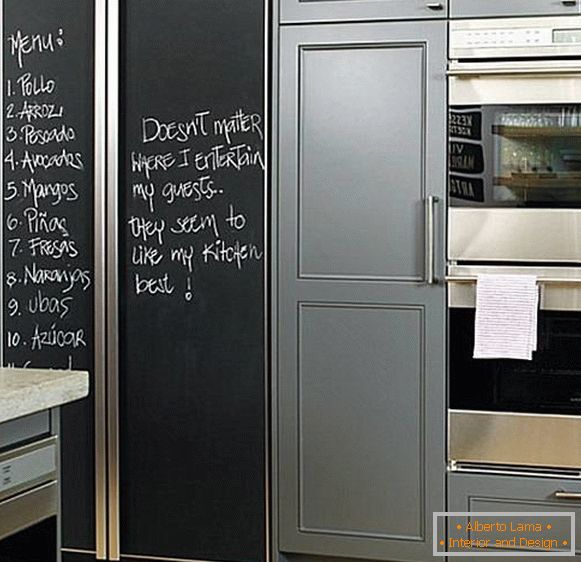 Menu:
1. Pollo
2. Arroz
3. Pescado
4. Avocados
5. Mangos
6. Piñas
7. Fresas
8. Naranjas
9. Ubas
10. Azúcar
Doesn't matter
where I entertain
my guests..
they seem to
like my kitchen
best!
Alberto Lama
Interior and Design